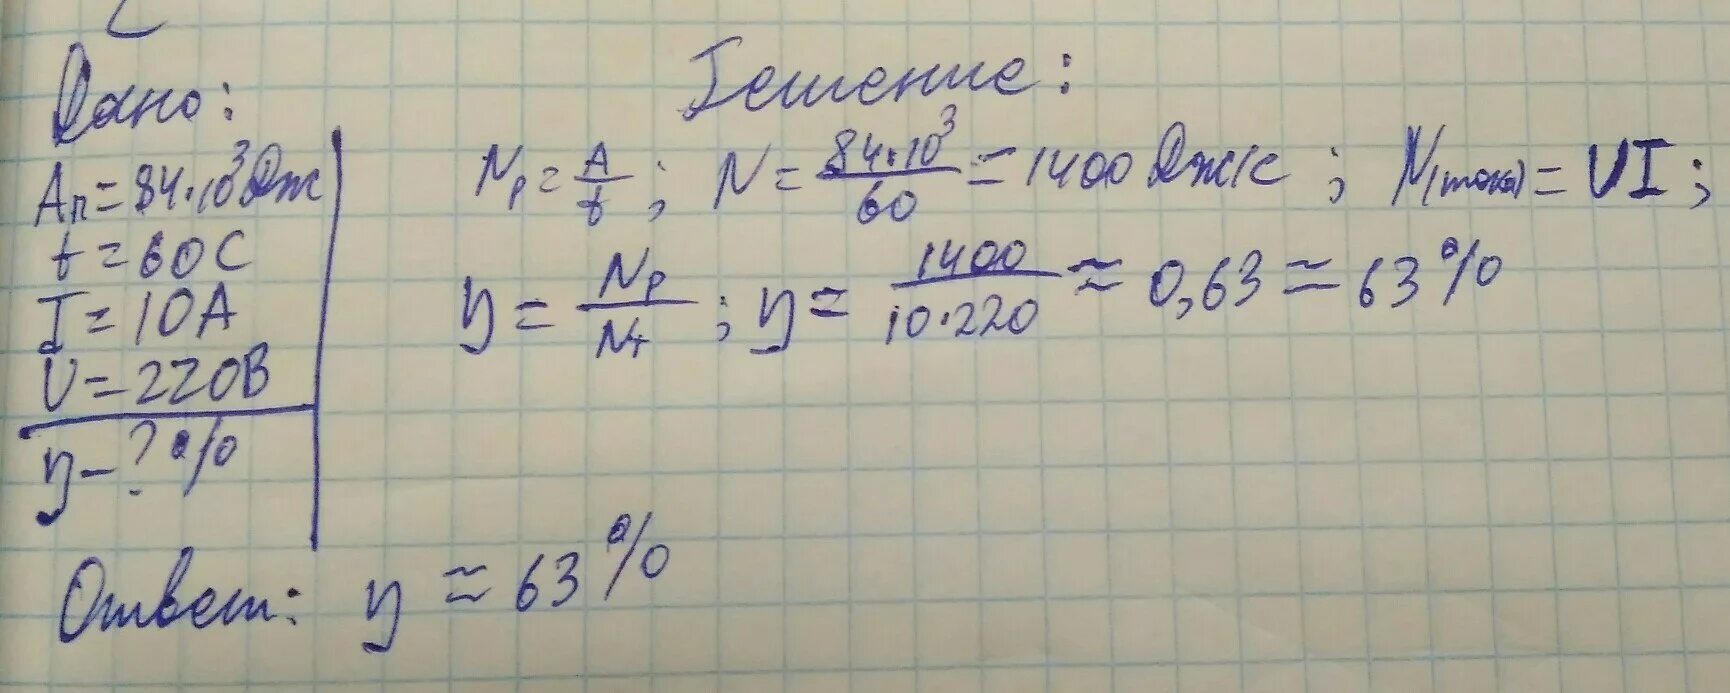 Дано:
Aп=84·10³Дж
t=60С
I=10А
U=220В
η-?%
Решение:
Np=A/t; N=84·10³/60=1400Дж/с; N(тока)=UI;
η=Np/Nт; η=1400/10·220≈0,63≈63%
Ответ: η≈63%